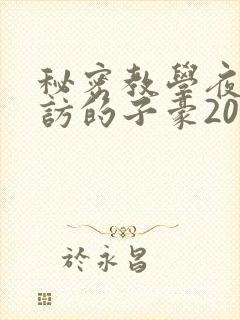 秘密教學夜
訪的子豪20
於永昌